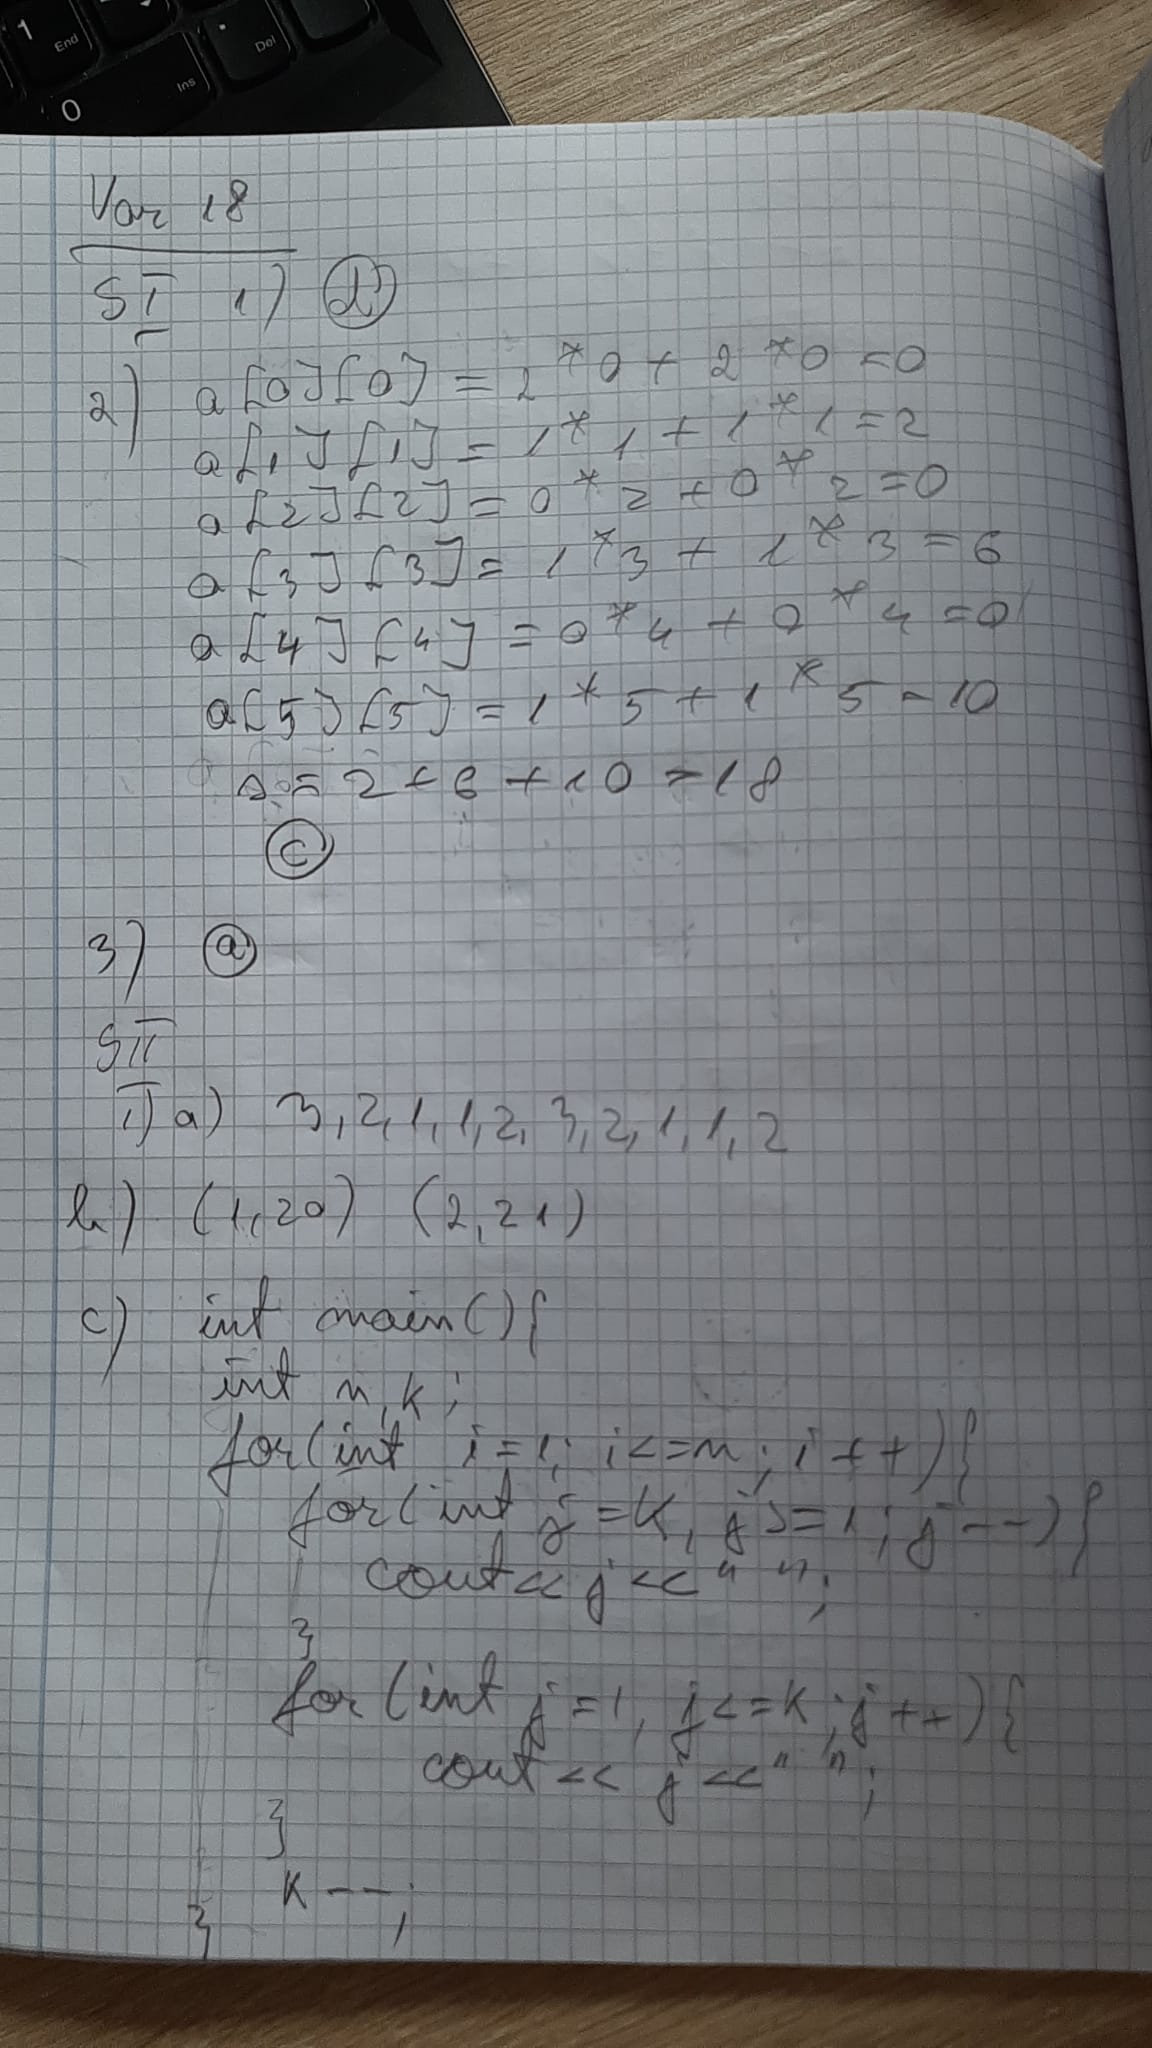 1
End
.
Del
0
Ins
Var 18
SI 1) d
2) a[0][0] = 2*0 + 2*0 = 0
a[1][1] = 1*1 + 1*1 = 2
a[2][2] = 0*2 + 0*2 = 0
a[3][3] = 1*3 + 1*3 = 6
a[4][4] = 0*4 + 0*4 = 0
a[5][5] = 1*5 + 1*5 = 10
s = 2 + 6 + 10 = 18
c
3) a
SII
1) a) 3, 2, 1, 1, 2, 3, 2, 1, 1, 2
b) (1,20) (2,21)
c) int main(){
int n, k;
for(int i=1; i<=n; i++){
for(int j=k, j>=1; j--){
cout<<j<<" ";
}
for(int j=1, j<=k; j++){
cout<<j<<" ";
}
k--;
}